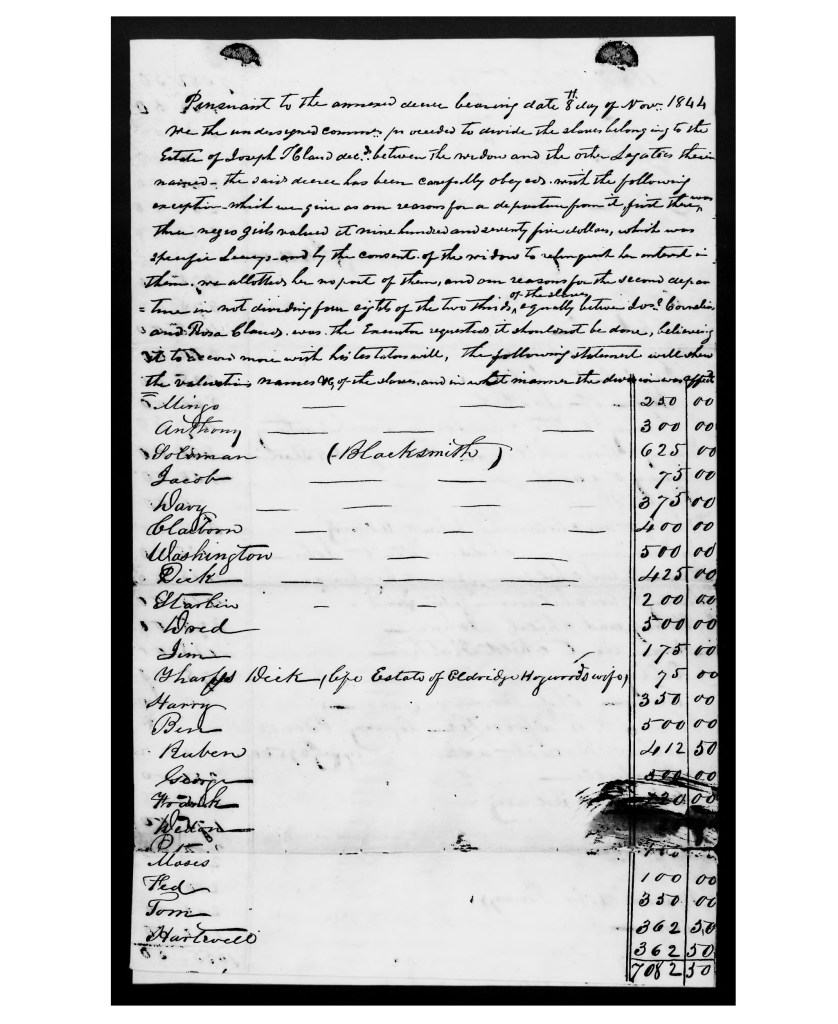 Pursuant to the annexed decree bearing date 8th day of Novr. 1844
We the undersigned commrs proceeded to divide the slaves belonging to the
Estate of Joseph T Claud decd. between the widow and the other Legatees therein
named. the said decree has been carefully obeyed. with the following
exception which we give as our reasons for a departure from it, first there was
three negro girls valued at nine hundred and seventy five dollars, which was
specific Lecacys and by the consent of the widow to relinquish her interest in
them. we allotted her no part of them, and our reasons for the second depar
=ture in not dividing four eights of the two thirds of the slaves equally between Jos. Cornelia
and Rosa Claud. was the Executor requested it should not be done, believing
it to accord more with his testators will, the following statement will shew
the valuation names &c, of the slaves, and in what manner the division was effectd
Mingo 250 00
Anthony 300 00
Soloman (Blacksmith) 625 00
Jacob 75 00
Davy 375 00
Claiborn 400 00
Washington 500 00
Dick 425 00
Starlin 200 00
Wred 500 00
Jim 175 00
Tharps Dick (life Estate of Eldridge Hogwoods wife) 75 00
Harry 350 00
Ben 500 00
Ruben 412 50
George 00
Fredrick 00
Moses
Ned 100 00
Tom 350 00
Hartwell 362 50
362 50
7082 50